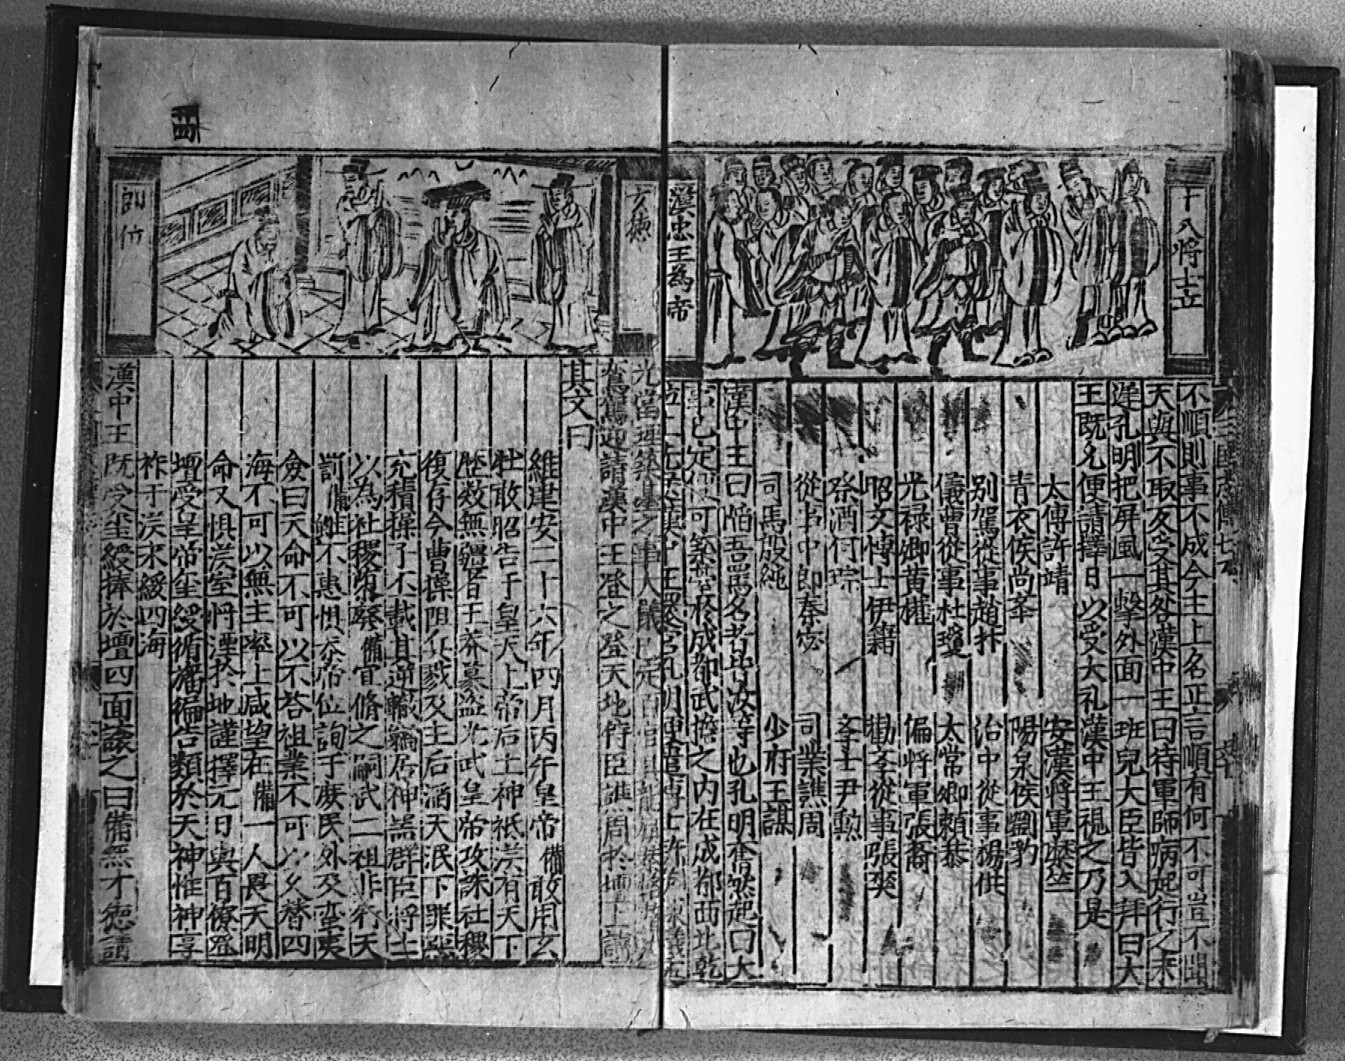 十八將士立
漢忠王為帝
不順則事不成今主上名正言順有何不可豈不聞
天與不取反受其咎漢中王曰待軍師病妃行之未
遲孔明把屏風一擊外面一班兒大臣皆入拜曰大
王既允便請擇日以受大礼漢中王視之乃是
太傅許靖 安漢將軍糜竺
青衣侯尚莘 陽泉侯劉豹
別駕從事趙抃 治中從事楊供
儀曹從事杜瓊 太常卿賴恭
光禄卿黄權 偏將軍張裔
昭文博士伊籍 勸李從事張爽
祭酒何宗 李士尹黙
從事中郎秦宓 司業譙周
司馬殷純 少府王謀
漢中王曰陷吾罵名者皆汝等也孔明奮然起曰大
事已定可築臺於成都武擔之内在成都西北乾
玄德
即位
光當理築臺之事人儀已定百官具
鸞駕迎請漢中王登之登天地侍臣譙周於壇上讀
其文曰
維建安二十六年四月丙午皇帝備敢用玄
牡敢昭告于皇天上帝后土神祇漢有天下
歴数無疆者王莽篡盜光武皇帝攻誅社稷
復存今曹操阻兵戮及主后滔天泯下罪惡
充積操子丕載其逆竊居神器群臣將士
以為社稷墮廢備宜脩之嗣武二祖龔行天
罰備雖不惠惧忝帝位詢于庶民外及蛮夷
僉曰天命不可以不荅祖業不可以久替四
海不可以無主率土咸望在備一人畏天明
命又惧漢室將湮於地謹擇元日與百僚登
壇受皇帝玺綬脩燔徧告類於天神惟神享
祚于漢永綏四海
漢中王既受玺綬捧於壇四面讓之曰備無才德請